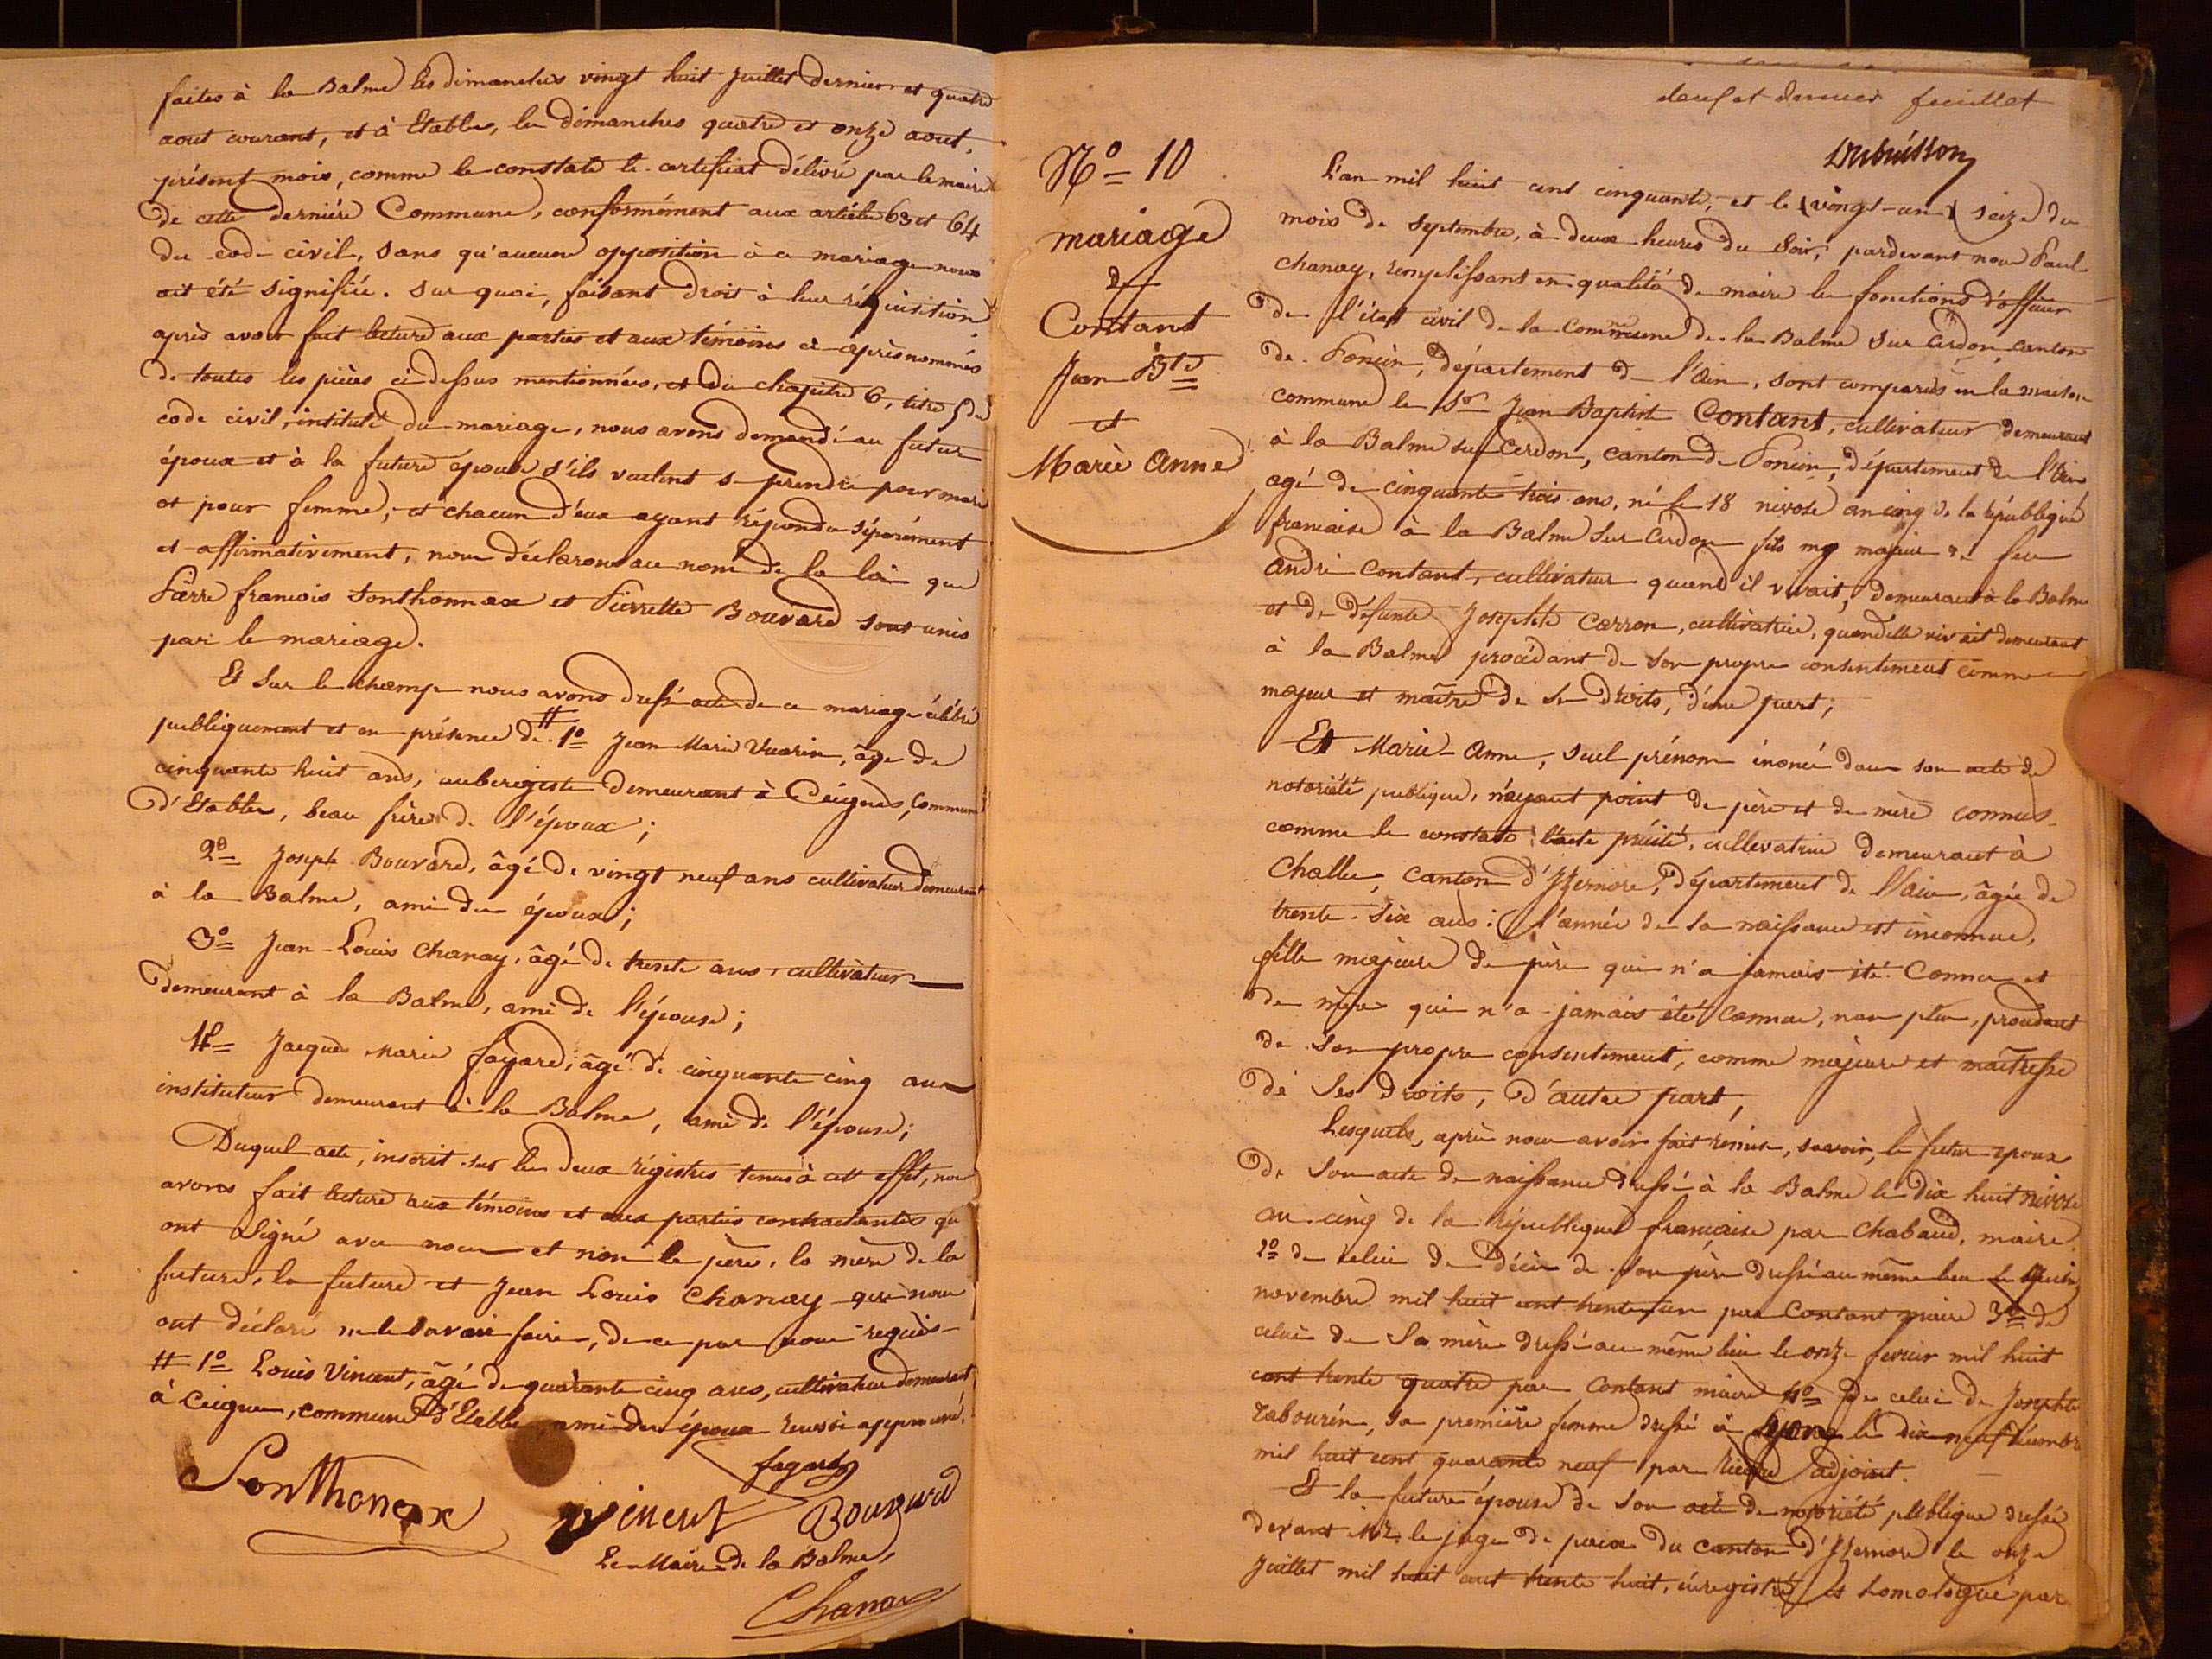 faites à la Balme les dimanches vingt huit juillet dernier et quatre
aout courant, et à Etables, les dimanches quatre et onze aout,
présent mois, comme le constate le certificat délivré par le maire
de cette dernière Commune, conformément aux article 63 et 64
du code civil, sans qu'aucune opposition à ce mariage nous
ait été signifiée. Sur quoi, faisant droit à leur réquisition
après avoir fait lecture aux parties et aux témoins ci-après nommés
de toutes les pièces ci-dessus mentionnées, et du chapitre 6, titre 5 du
code civil, intitulé du mariage, nous avons demandé au futur
époux et à la future épouse s'ils veulent se prendre pour mari
et pour femme, et chacun d'eux ayant répondu séparément
et affirmativement, nous déclarons au nom de la loi que
Pierre francois Sonthonnax et Pierrette Bouvard sont unis
par le mariage.
Et sur le champ nous avons dressé acte de ce mariage célébré
publiquement et en présence de # 1º Jean Marie Vuarin, âgé de
cinquante huit ans, aubergiste demeurant à Ceignes, Commune
d'Etables, beau frère de l'époux;
2º Joseph Bouvard, âgé de vingt neuf ans cultivateur demeurant
à la Balme, ami des époux;
3º Jean-Louis Chanay, âgé de trente ans, cultivateur
demeurant à la Balme, ami de l'épouse;
4º Jacques Marie fayard, âgé de cinquante cinq ans
instituteur demeurant à la Balme, ami de l'épouse;
Duquel acte, inscrit sur les deux régistres tenus à cet effet, nous
avons fait lecture aux témoins et aux parties contractantes qui
ont signé avec nous et non le père, la mère de la
future, la future et Jean Louis Chanay qui nous
ont déclaré ne le savoir faire, de ce par nous requis
# 1º Louis Vincent, âgé de quarante cinq ans, cultivateur demeurant
à Ceignes, commune d'Etables ami des époux approuvé.
fayard
Sonthonax Vincent Bouvard
Le Maire de la Balme,
Chanay
deuf et dernier feuillet
Dubuisson
Nº 10
mariage
de
Contant
Jean Bte
et
Marie Anne
L'an mil huit cent cinquante, et le (vingt-un) seize du
mois de Septembre, à deux heures du soir, pardevant nous Paul
Chanay, remplissant en qualité de maire les fonctions d'officier
de l'état civil de la Commune de la Balme sur Cerdon, canton
de Poncin, département de l'Ain, sont comparus en la maison
commune le Sr Jean Baptiste Contant, cultivateur demeurant
à la Balme sur Cerdon, canton de Poncin, département de l'Ain
agé de cinquante trois ans, né le 18 nivose an cinq de la république
francaise à la Balme sur Cerdon fils majeur de feu
André Contant, cultivateur quand il vivait, demeurant à la Balme
et de défunte Josephte Carron, cultivatrice, quand elle vivait demeurant
à la Balme procédant de son propre consentement comme
majeur et maître de ses droits, d'une part;
Et Marie-Anne, seul prénom énoncé dans son acte de
notoriété publique, n'ayant point de père et de mère connus
comme le constate l'acte précité, cultivatrice demeurant à
Challes, canton d'Izernore, département de l'Ain, âgée de
trente-six ans: l'année de sa naissance est inconnue,
fille majeure de père qui n'a jamais été connu et
de mère qui n'a jamais été connue, non plus, procédant
de son propre consentement, comme majeure et maîtresse
de ses droits, d'autre part,
Lesquels, après nous avoir fait remise, savoir, le futur époux
de son acte de naissance dressé à la Balme le dix huit nivose
an cinq de la république francaise par Chabaud, maire.
2º de celui de décès de son père dressé au même lieu le
novembre mil huit cent trente un par Contant maire 3º de
celui de sa mère dressé au même lieu le onze fevrier mil huit
cent trente quatre par Contant maire 4º de celui de Josephte
Tabourin, sa première femme dressé à le dix neuf
mil huit cent quarante neuf par adjoint.
Et la future épouse de son acte de notoriété publique dressé
devant Mr. le juge de paix du canton d'Izernore le onze
Juillet mil huit cent trente huit, enregistré et homologué par